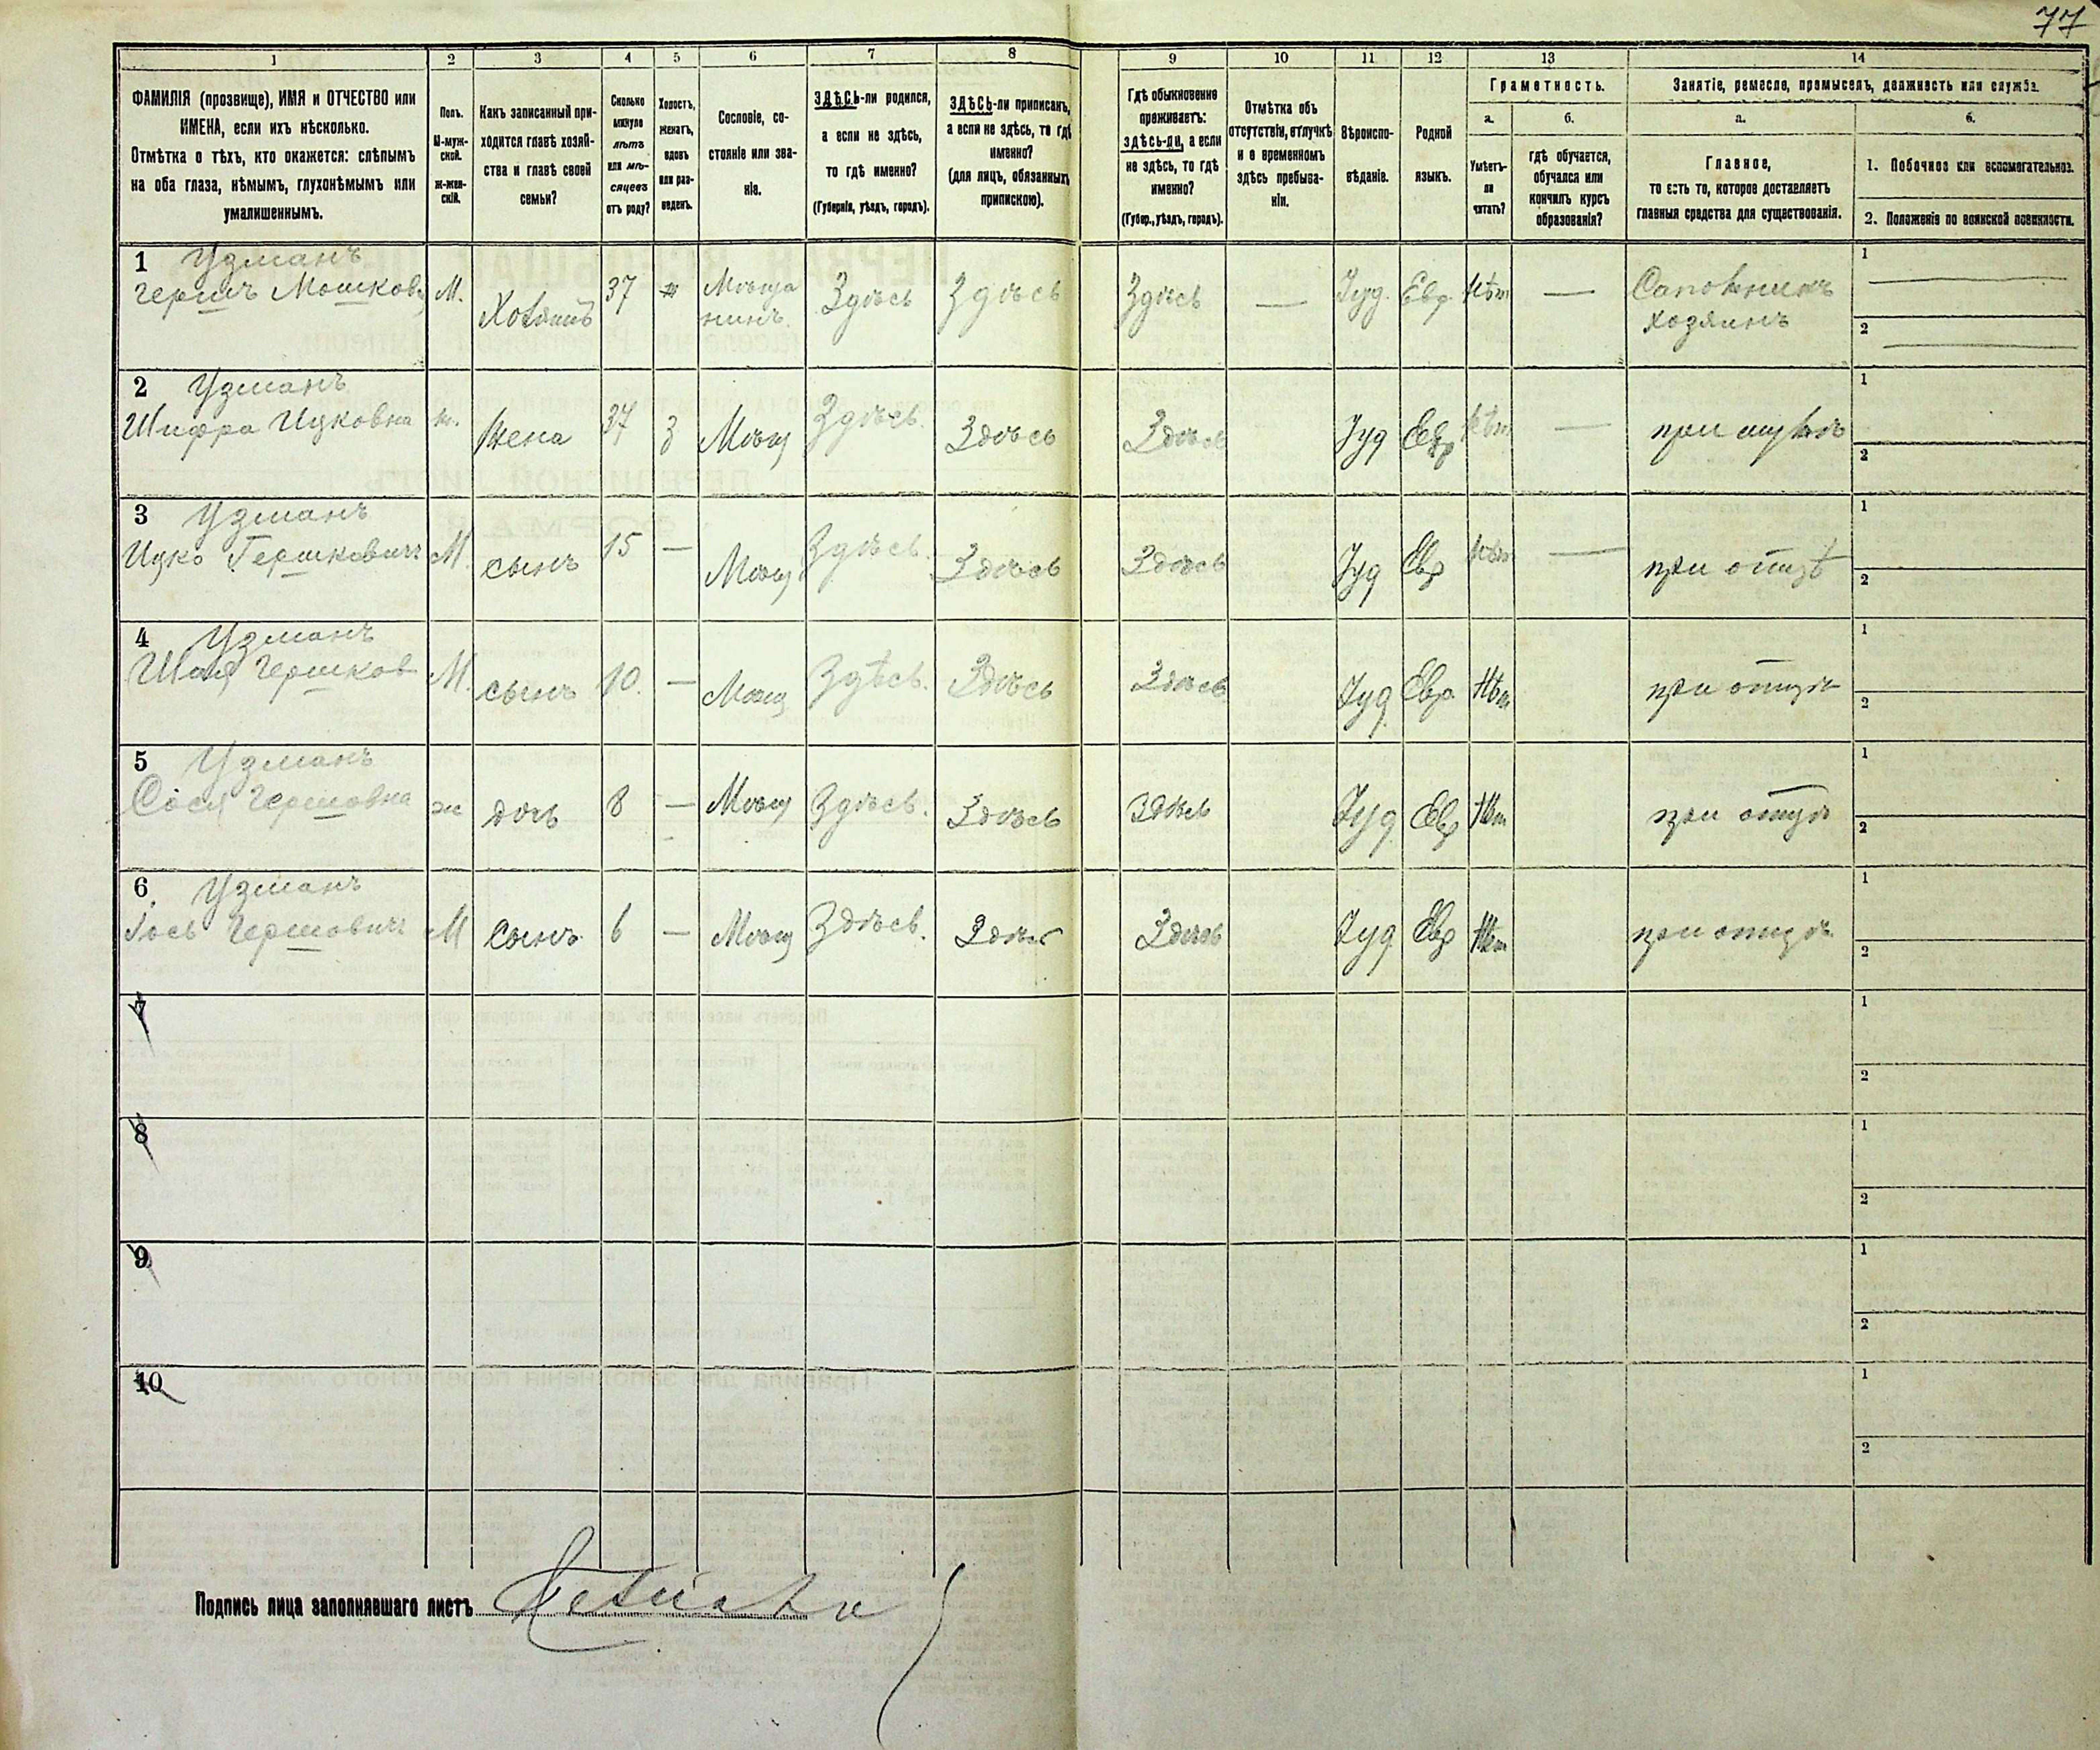 77
1 2 3 4 5 6 7 8 9 10 11 12 13 14
ФАМИЛІЯ (прозвище), ИМЯ и ОТЧЕСТВО или
ИМЕНА, если ихъ нѣсколько.
Отмѣтка о тѣхъ, кто окажется: слѣпымъ
на оба глаза, нѣмымъ, глухонѣмымъ или
умалишеннымъ.
Полъ.
М-муж-
ской.
ж-жен-
скій.
Какъ записанный при-
ходится главѣ хозяй-
ства и главѣ своей
семьи?
Сколько
минуло
лѣтъ
или мѣ-
сяцевъ
отъ роду?
Холостъ,
женатъ,
вдовъ
или раз-
веденъ.
Сословіе, со-
стояніе или зва-
ніе.
ЗДѢСЬ-ли родился,
а если не здѣсь,
то гдѣ именно?
(Губернія, уѣздъ, городъ).
ЗДѢСЬ-ли приписанъ,
а если не здѣсь, то гдѣ
именно?
(для лицъ, обязанныхъ
припискою).
Гдѣ обыкновенно
проживаетъ:
здѣсь-ли, а если
не здѣсь, то гдѣ
именно?
(Губер., уѣздъ, городъ).
Отмѣтка объ
отсутствіи, отлучкѣ
и о временномъ
здѣсь пребыва-
ніи.
Вѣроиспо-
вѣданіе.
Родной
языкъ.
Грамотность.
а.
Умѣетъ-
ли
читать?
б.
гдѣ обучается,
обучался или
кончилъ курсъ
образованія?
Занятіе, ремесло, промыселъ, должность или служба.
а.
Главное,
то есть то, которое доставляетъ
главныя средства для существованія.
б.
1. Побочное или вспомогательное.
2. Положеніе по воинской повинности.
1 Узманъ
Гершъ Мошков М. Хозяинъ 37 ж Мѣща Здѣсь Здѣсь Здѣсь — Іуд. Евр. Нѣт — Сапожникъ 1
нинъ хозяинъ 2
2 Узманъ
Шифра Ицковна ж. Жена 37 З Мѣщ Здѣсь. Здѣсь Здѣсь Іуд Евр Нѣт — при мужѣ 1
2
3 Узманъ
Ицко Гершковичъ М. сынъ 15 — Мѣщ Здѣсь. Здѣсь Здѣсь Іуд Евр Нѣт — при отцѣ 1
2
4 Узманъ
Гершков М. сынъ 10. — Мѣщ Здѣсь. Здѣсь Здѣсь Іуд Евр. Нѣт при отцѣ 1
2
5 Узманъ
Сося Гершовна ж дочь 8 — Мѣщ Здѣсь. Здѣсь Здѣсь Іуд Евр Нѣт при отцѣ 1
2
6 Узманъ
Гершовичъ М сынъ 6 — Мѣщ Здѣсь. Здѣсь Здѣсь Іуд Евр Нѣт при отцѣ 1
2
7 1
2
8 1
2
9 1
2
10 1
2
Подпись лица заполнявшаго листъ